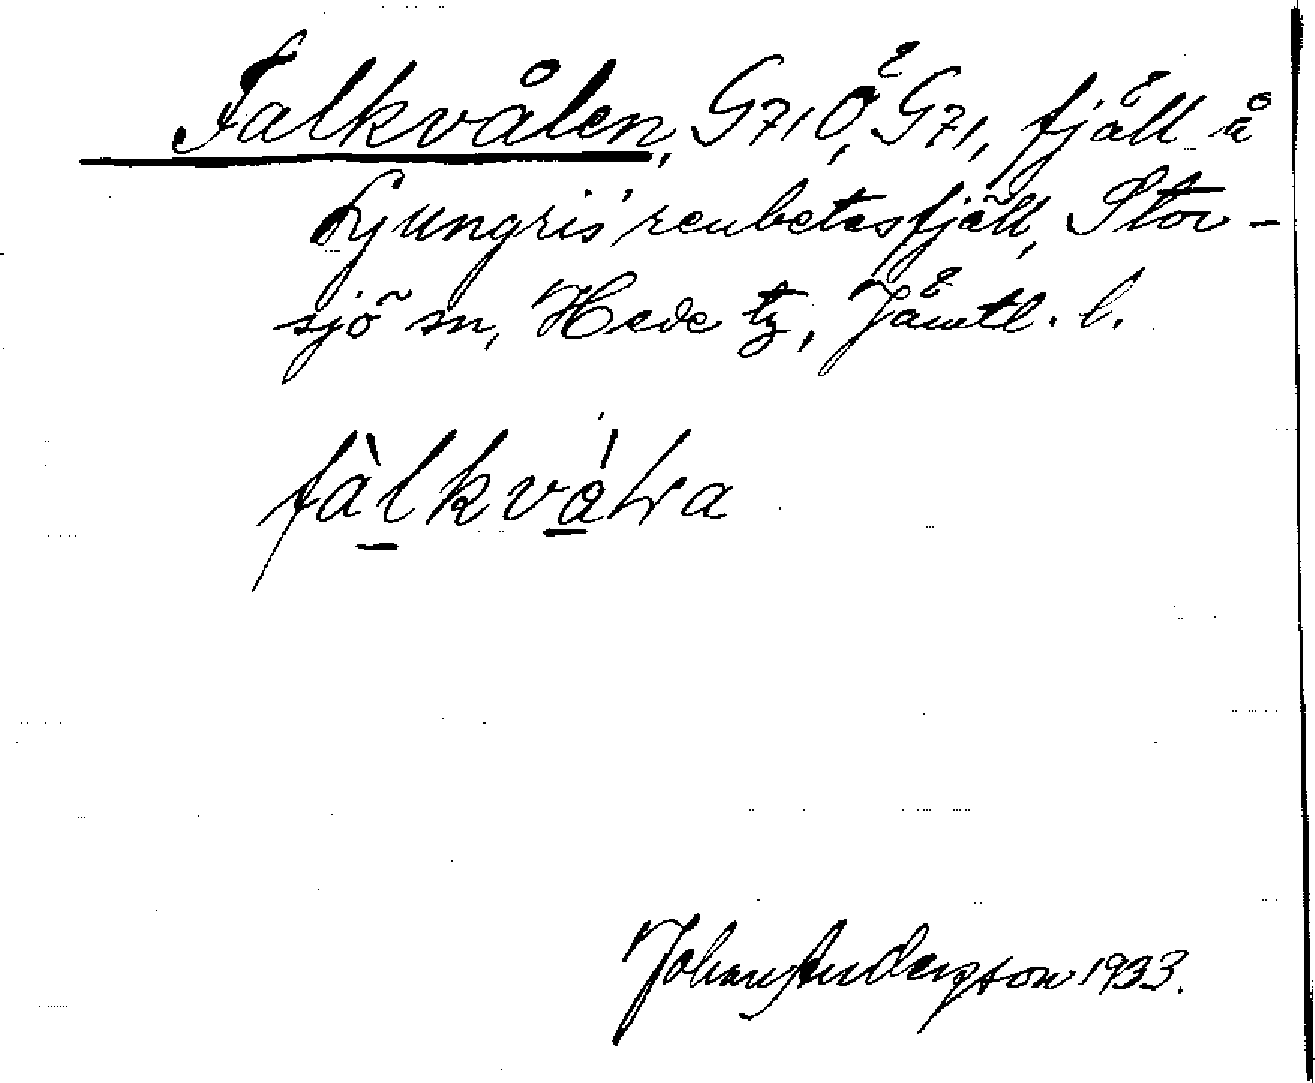 Falkvålen, G71 Ö, G71, fjäll å
Ljungris' renbetesfjäll, Stor-
sjö sn, Hede tg, Jämtl. l.
fàlkvál̵a
Johan Anderzson 1933.